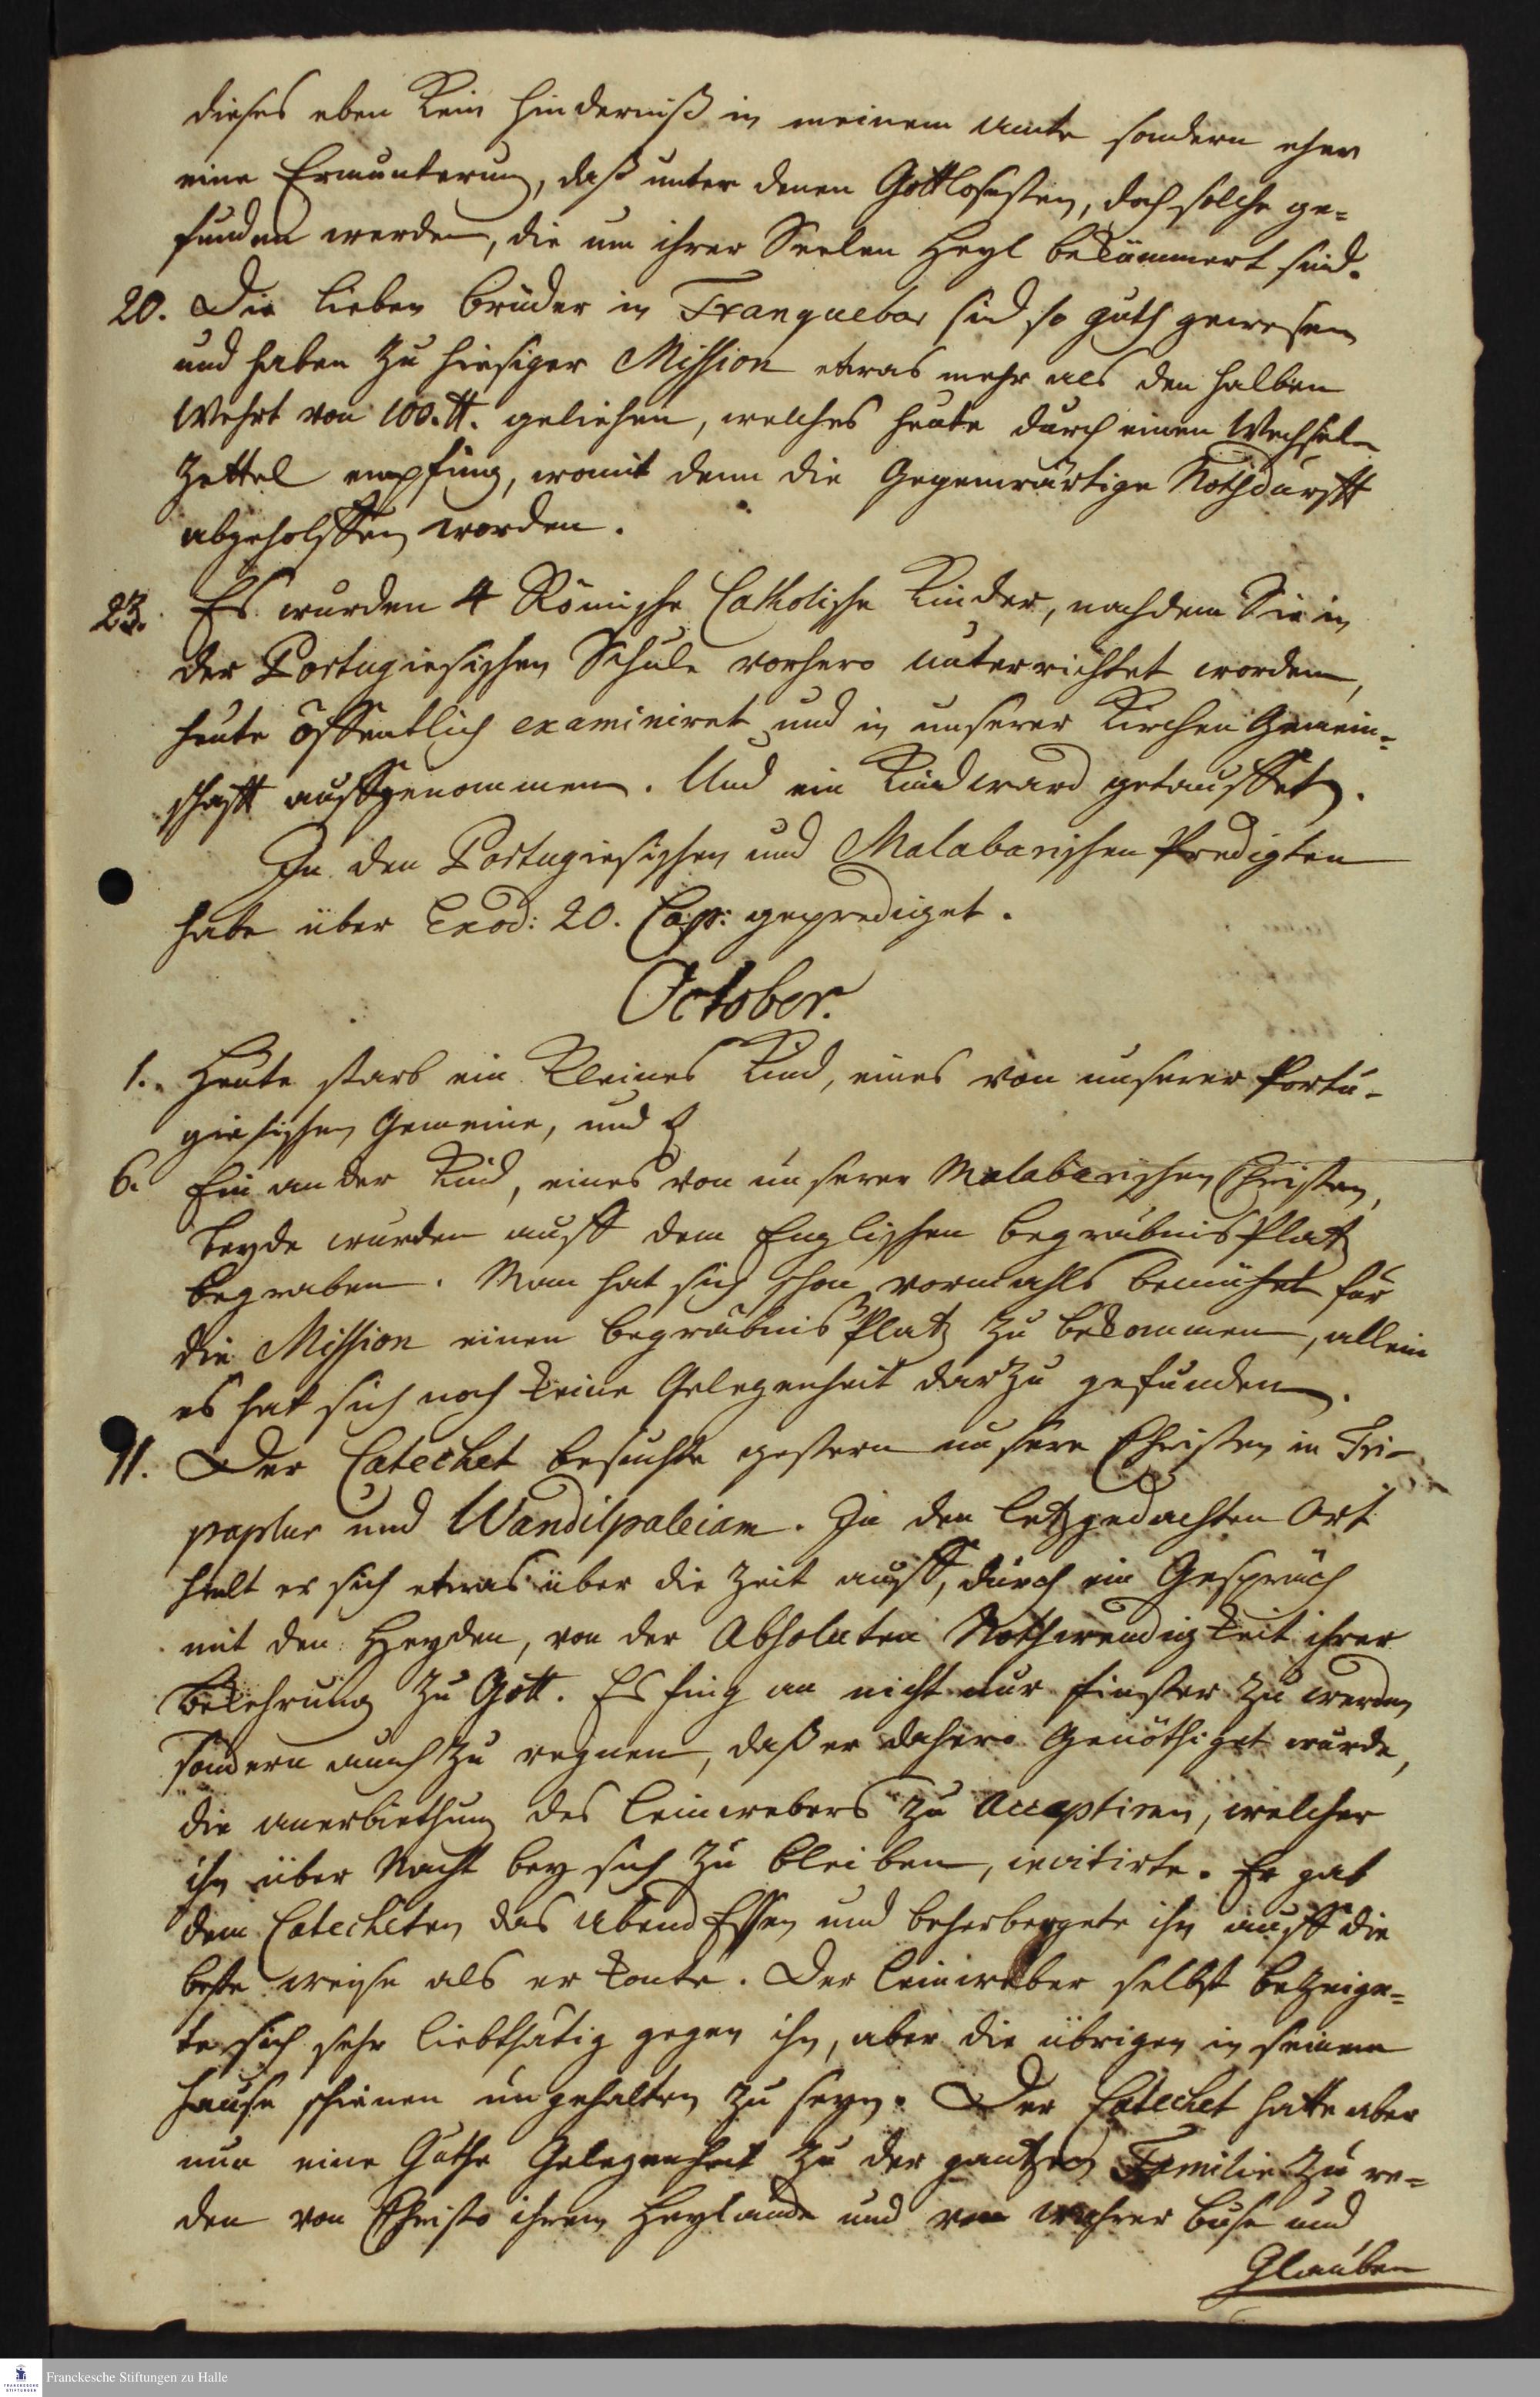 dieses eben kein Hinderniß in meinem Amte sondern eher
eine Ermunterung, daß unter denen Gottlosesten, doch solche ge=
funden werden, die um ihrer Seelen Heyl bekümmert sind.
20. Die lieben Brüder in Tranquebar sind so guth gewesen
und haben zu hiesiger Mission etwas mehr als den halben
Wehrt von 100. ℔. geliehen, welches heute durch einen Wechsel-
Zettel empfing, womit denn die Gegenwärtige Nothdurfft
abgeholffen worden.
23. Es wurden 4 Römische Catholische Kinder, nachdem Sie in
der Portugiesischen Schule vorhero unterrichtet worden,
heute öffentlich examiniret und in unserer Kirchen Gemein=
schafft auffgenommen. Und ein Kind ward getauffet.
In den Portugiesischen und Malabarischen Predigten
habe über Exod: 20. Cap: geprediget.
October.
1. Heute starb ein kleines Kind, eines von unserer Portu-
giesischen Gemeine, und d
6. Ein ander Kind, eines von unserer Malabarischen Christen,
beyde wurden auff dem Englischen Begräbnis Platz
begraben. Man hat sich schon vormahls bemühet für
die Mission einen Begräbnis Platz zu bekommen, allein
es hat sich noch keine Gelegenheit darzu gefunden.
11. Der Catechet besuchte gestern unsere Christen in Tri-
paplur und Wandilpaleiam. In den letzgedachten Ort
hielt er sich etwas über die Zeit auff, durch ein Gespräch
mit den Heyden, von der Absoluten Nothwendigkeit ihrer
Bekehrung zu Gott. Es fing an nicht nur finster zu werden
sondern auch zu regnen, daß er dahero Genöthiget wurde,
die Anerbiethung des Leinwebers zu Acceptiren, welcher
ihn über Nacht bey sich zu bleiben, invitirte. Er gab
dem Catecheten das Abend Essen und beherbergete ihn auff die
beste weise als er konte. Der Leinweber selbst bezeige=
te sich sehr liebthätig gegen ihn, aber die übrigen in seinem
Hause schienen ungehalten zu seyn. Der Catechet hatte aber
nun eine Guthe Gelegenheit zu der gantzen Familie zu re=
den von Christo ihrem Heylande und von wahrer Buße und
Glauben
Franckesche Stiftungen zu Halle